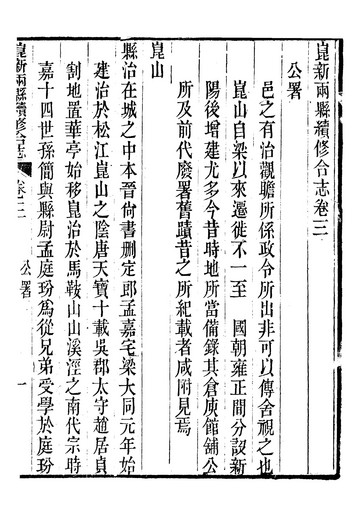 崑新兩縣續修合志卷三
公署
邑之有治觀瞻所係政令所出非可以傳舍視之也
崑山自梁以來遷徙不一至　國朝雍正間分設新
陽後增建尤多今昔時地所當備錄其倉庾館舖公
所及前代廢署舊蹟昔之所紀載者咸附見焉
崑山
縣治在城之中本晉尚書刪定郎孟嘉宅梁大同元年始
建治於松江崑山之陰唐天寶十載吳郡太守趙居貞
割地置華亭始移崑治於馬鞍山山溪涇之南代宗時
嘉十四世孫簡與縣尉孟庭玢為從兄弟受學於庭玢
崑新兩縣續修合志　卷三　公署　一